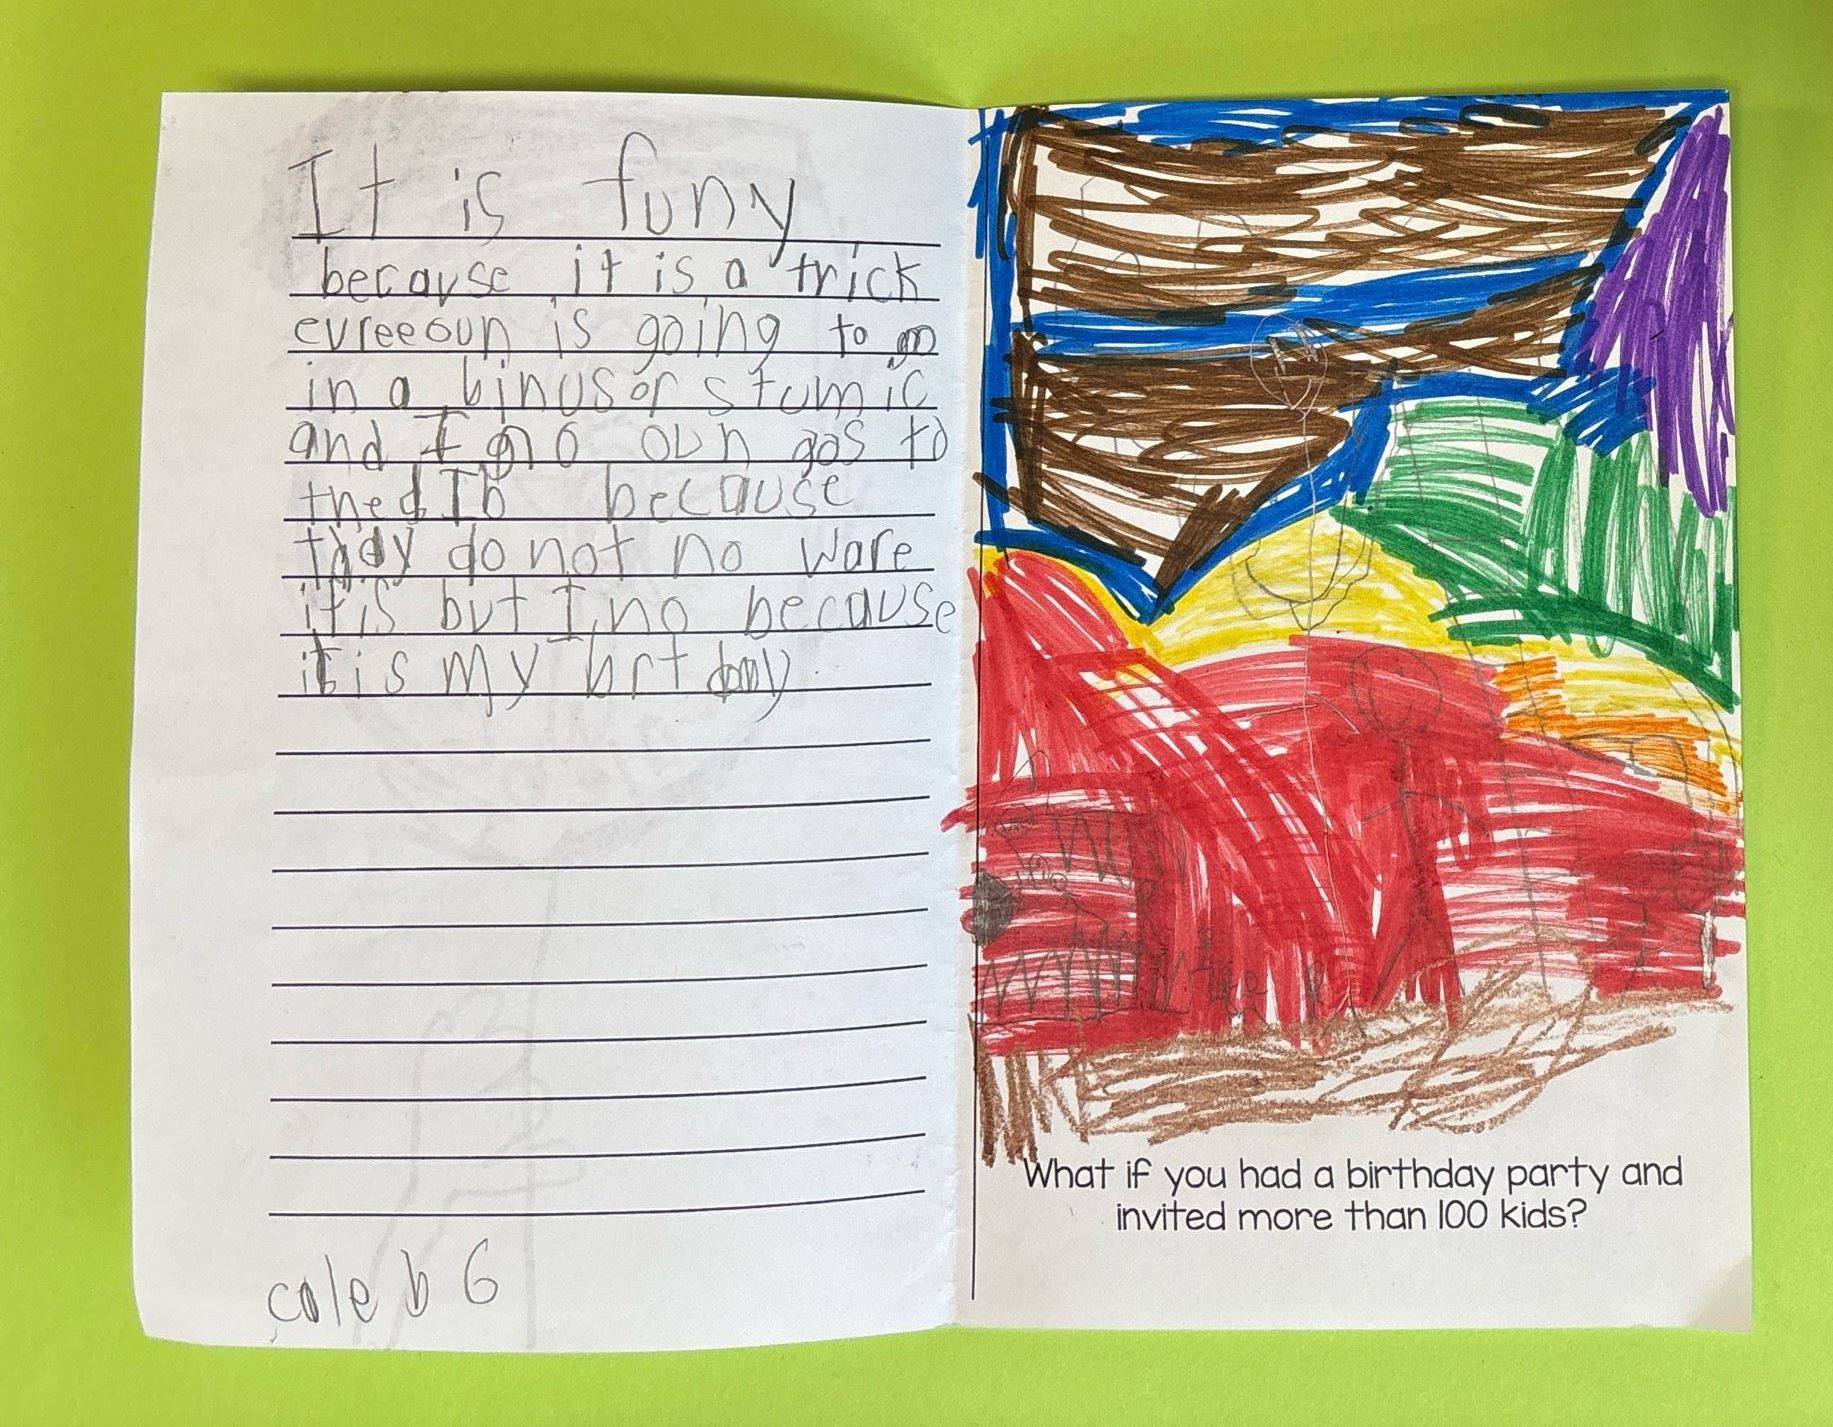 It is funy
because it is a trick
evreeoun is going to go
in a binusor stumic
and I no oun gos to
the b because
thay do not no ware
it is but I no because
it is my brt day.
caleb G
What if you had a birthday party and
invited more than 100 kids?